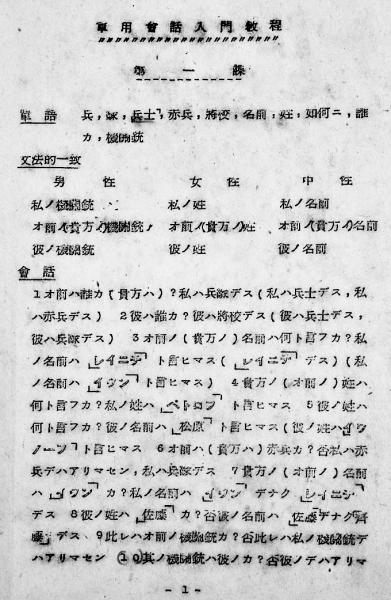 軍用會話入門教程
第一課
單語 兵,隊,兵士,赤兵,將校,名前,姓,如何ニ,誰
カ,機關銃
文法的一致
男性 女性 中性
私ノ機關銃 私ノ姓 私ノ名前
オ前ノ(貴方ノ)機關銃, オ前ノ(貴方ノ)姓 オ前ノ(貴方ノ)名前
彼ノ機關銃 彼ノ姓 彼ノ名前
會話
1オ前ハ誰カ(貴方ハ)?私ハ兵隊デス(私ハ兵士デス,私
ハ赤兵デス) 2彼ハ誰カ?彼ハ將校デス(彼ハ兵士デス,
彼ハ兵隊デス) 3オ前ノ(貴方ノ)名前ハ何ト言フカ?(私
ノ名前ハ「レイニデ」ト言ヒマス(「レイニデ」デス)(私
ノ名前ハ「イワン」ト言ヒマス) 4貴方ノ(オ前ノ)姓ハ
何ト言フカ?私ノ姓ハ「ペトロフ」ト言ヒマス 5彼ノ姓ハ
何ト言フカ?彼ノ名前ハ「松原」ト言ヒマス(彼ノ姓ハ「イワ
ノーフ」ト言ヒマス 6オ前ハ(貴方ハ)赤兵カ?否私ハ赤
兵デハアリマセン,私ハ兵隊デス 7貴方ノ(オ前ノ)名前
ハ「イワン」カ?私ノ名前ハ「イワン」デナク「レイニデ」
デス 8彼ノ姓ハ「佐藤」カ?否彼ノ名前ハ「佐藤」デナク「齊
藤」デス、9此レハオ前ノ機關銃カ?否此レハ私ノ機關銃デ
ハアリマセン (10)其ノ機關銃ハ彼ノカ?否彼ノデハアリマ
-1-